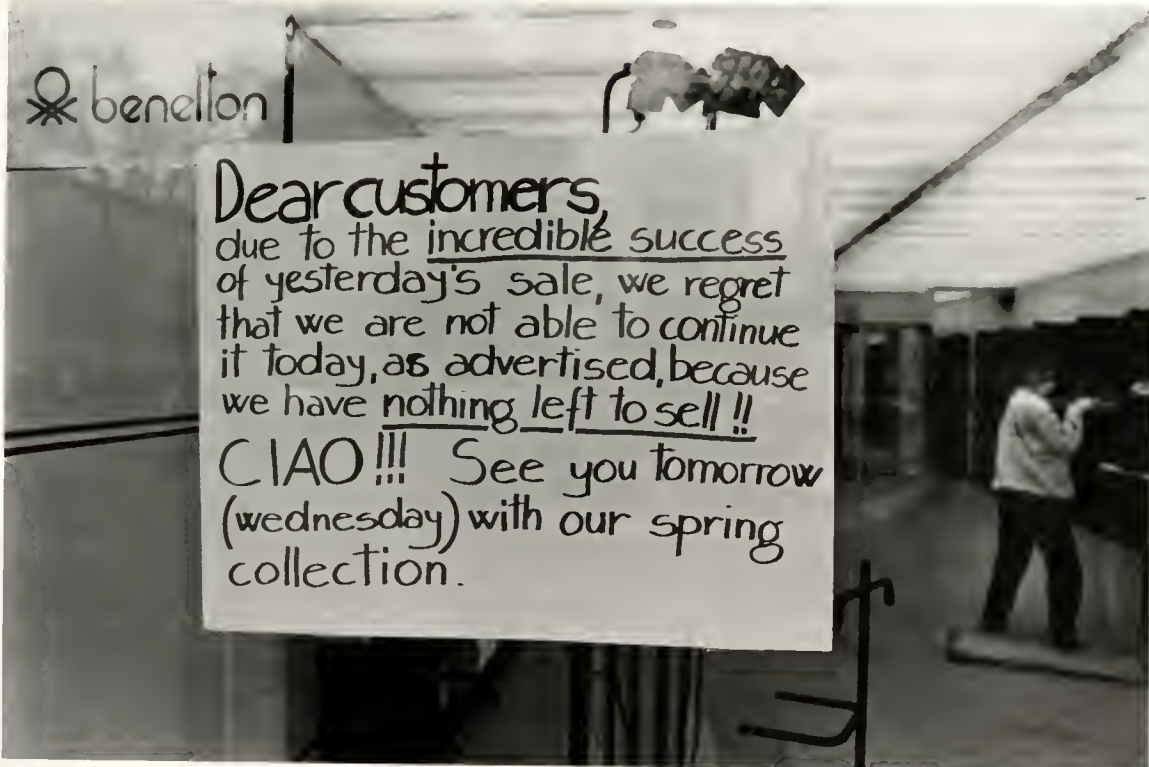 benetton
Dear customers,
due to the incredible success
of yesterday's sale, we regret
that we are not able to continue
it today, as advertised, because
we have nothing left to sell !!
CIAO!!! See you tomorrow
(wednesday) with our spring
collection.